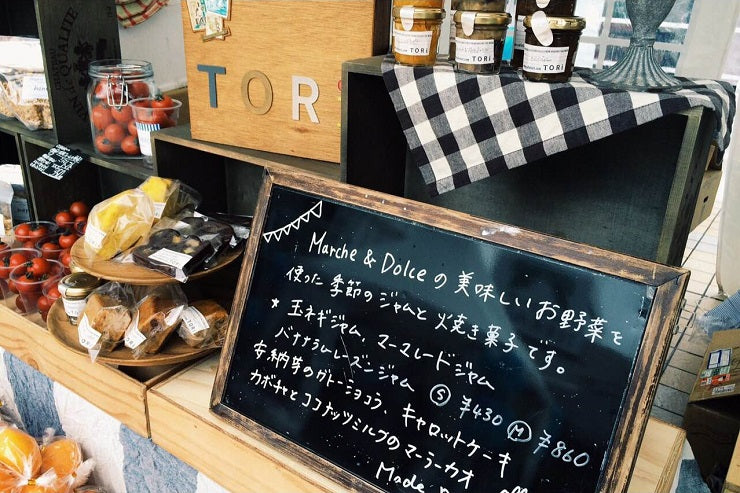 TORi
TORi
TORi
TOR
Marche & Dolceの美味しいお野菜を
使った季節のジャムと焼き菓子です。
* 玉ネギジャム、マーマレードジャム
バナナラムレーズンジャム Ⓢ ¥430 Ⓜ ¥860
安納芋のガトーショコラ、キャロットケーキ
カボチャとココナッツミルクのマーラーカオ
Made